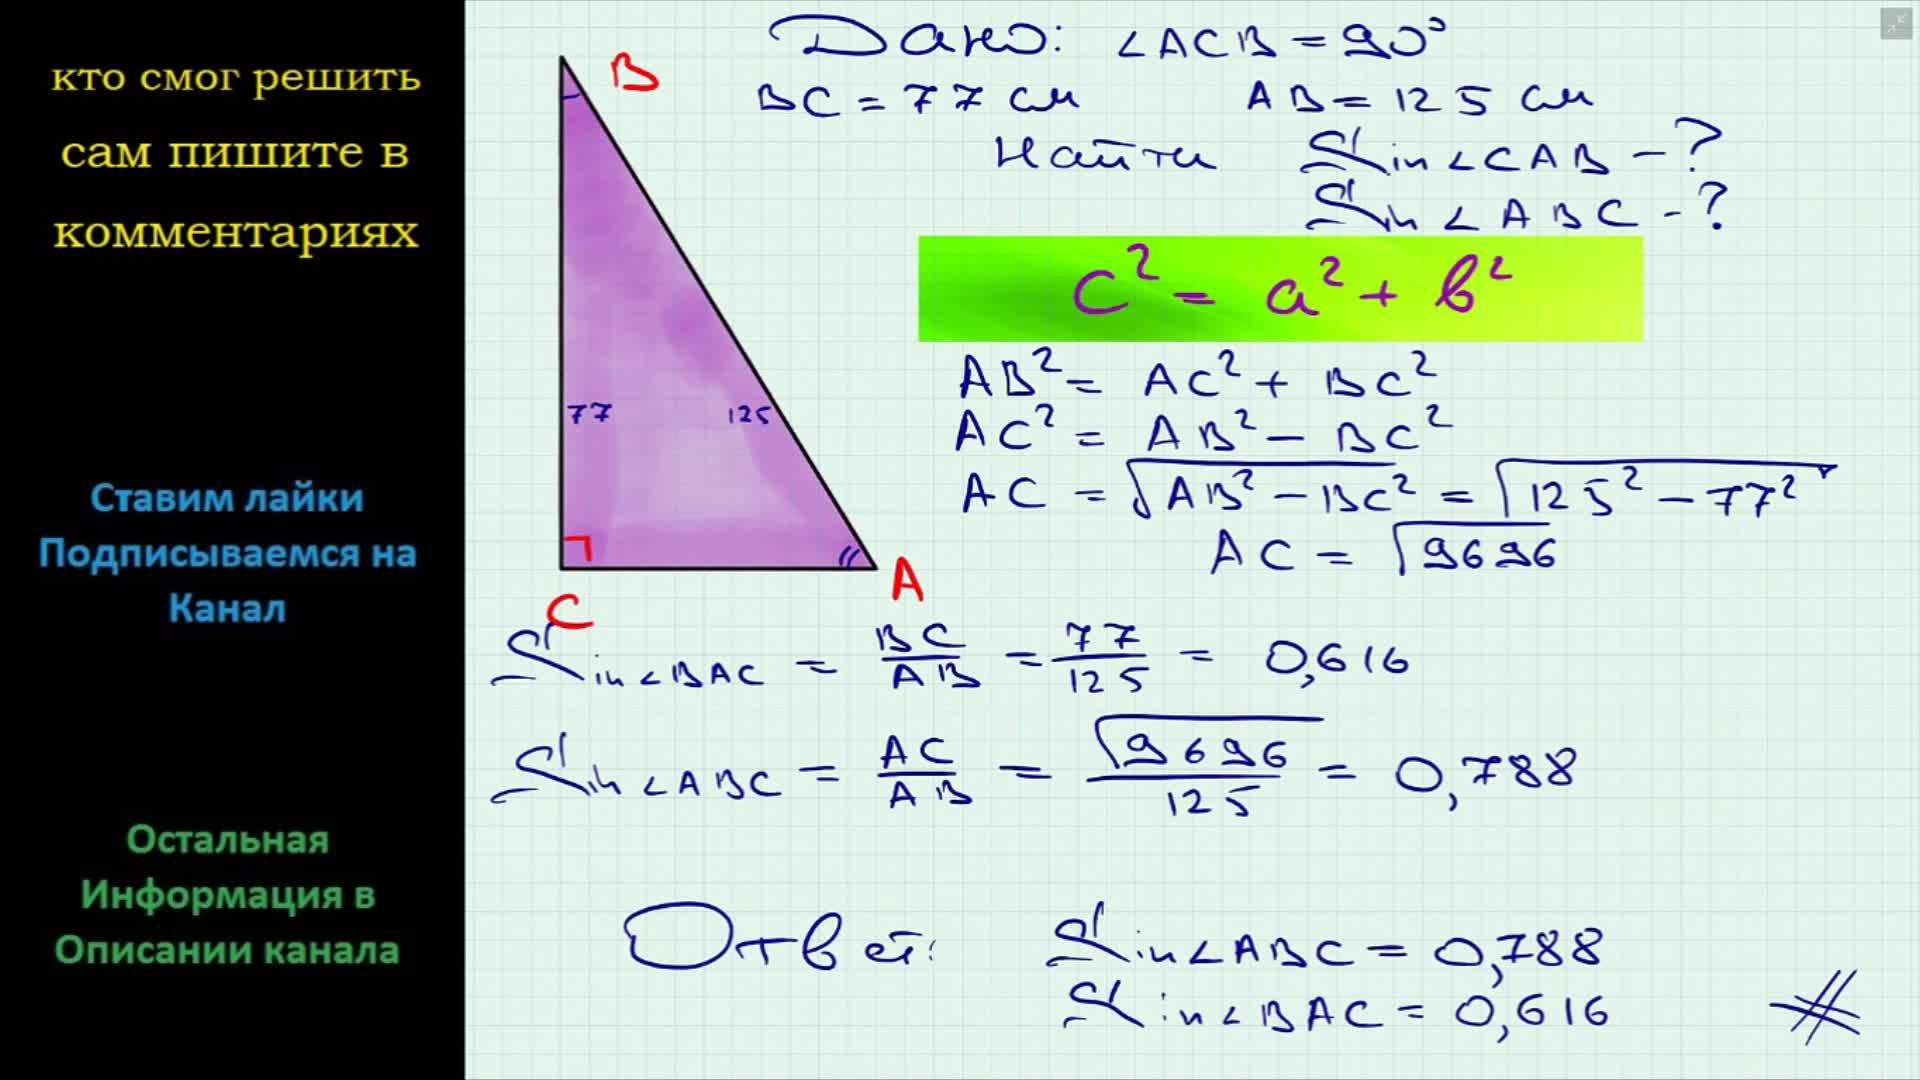 кто смог решить
сам пишите в
комментариях
Ставим лайки
Подписываемся на
Канал
Остальная
Информация в
Описании канала
Дано: ∠ACB = 90°
BC = 77 см AB = 125 см
Найти Sin∠CAB - ?
Sin∠ABC - ?
c² = a² + b²
B
77
125
C
A
AB² = AC² + BC²
AC² = AB² - BC²
AC = √AB² - BC² = √125² - 77²
AC = √9696
Sin∠BAC = BC/AB = 77/125 = 0,616
Sin∠ABC = AC/AB = √9696/125 = 0,788
Ответ: Sin∠ABC = 0,788
Sin∠BAC = 0,616